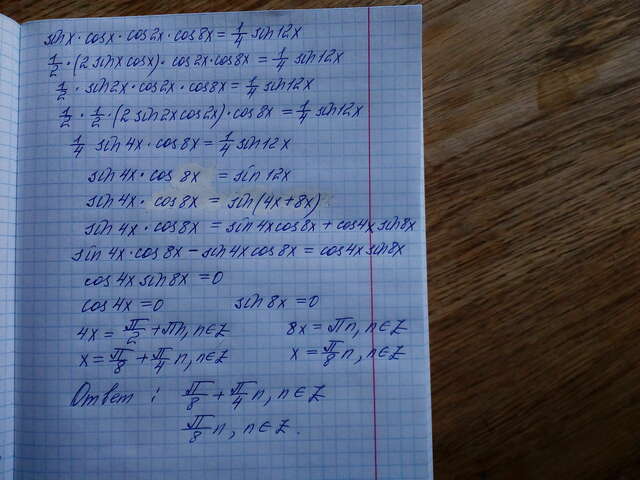 sinx · cosx · cos2x · cos8x = 1/4 sin12x
1/2 · (2 sinx cosx) · cos2x · cos8x = 1/4 sin12x
1/2 · sin2x · cos2x · cos8x = 1/4 sin12x
1/2 · 1/2 · (2 sin2x cos2x) · cos8x = 1/4 sin12x
1/4 sin4x · cos8x = 1/4 sin12x
sin4x · cos8x = sin12x
sin4x · cos8x = sin(4x+8x)
sin4x · cos8x = sin4x cos8x + cos4x sin8x
sin4x · cos8x - sin4x cos8x = cos4x sin8x
cos4x sin8x = 0
cos4x = 0 sin8x = 0
4x = π/2 + πn, n∈Z 8x = πn, n∈Z
x = π/8 + π/4 n, n∈Z x = π/8 n, n∈Z
Ответ: π/8 + π/4 n, n∈Z
π/8 n, n∈Z.